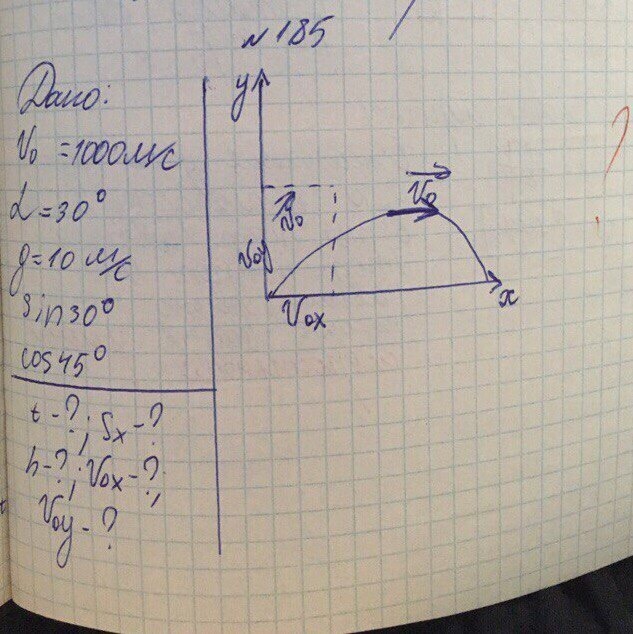 №185
Дано:
V₀ = 1000 м/с
α = 30°
g = 10 м/с
sin30°
cos45°
t - ?; Sx - ?
h - ?; V₀x - ?;
V₀y - ?
y
V₀
V₀
V₀y
V₀x
x